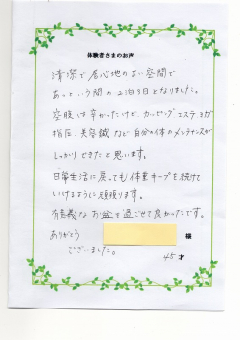 体験者さまのお声
清潔で居心地のよい空間で
あっという間の2泊3日となりました。
空腹は辛かったけど、カッピング エステ ヨガ
指圧、美容鍼など自分の体のメンテナンスが
しっかりできたと思います。
日常生活に戻っても体重キープを続けて
いけるように頑張ります。
有意義なお盆を過ごせて良かったです。
ありがとう
ございました。
様
45才